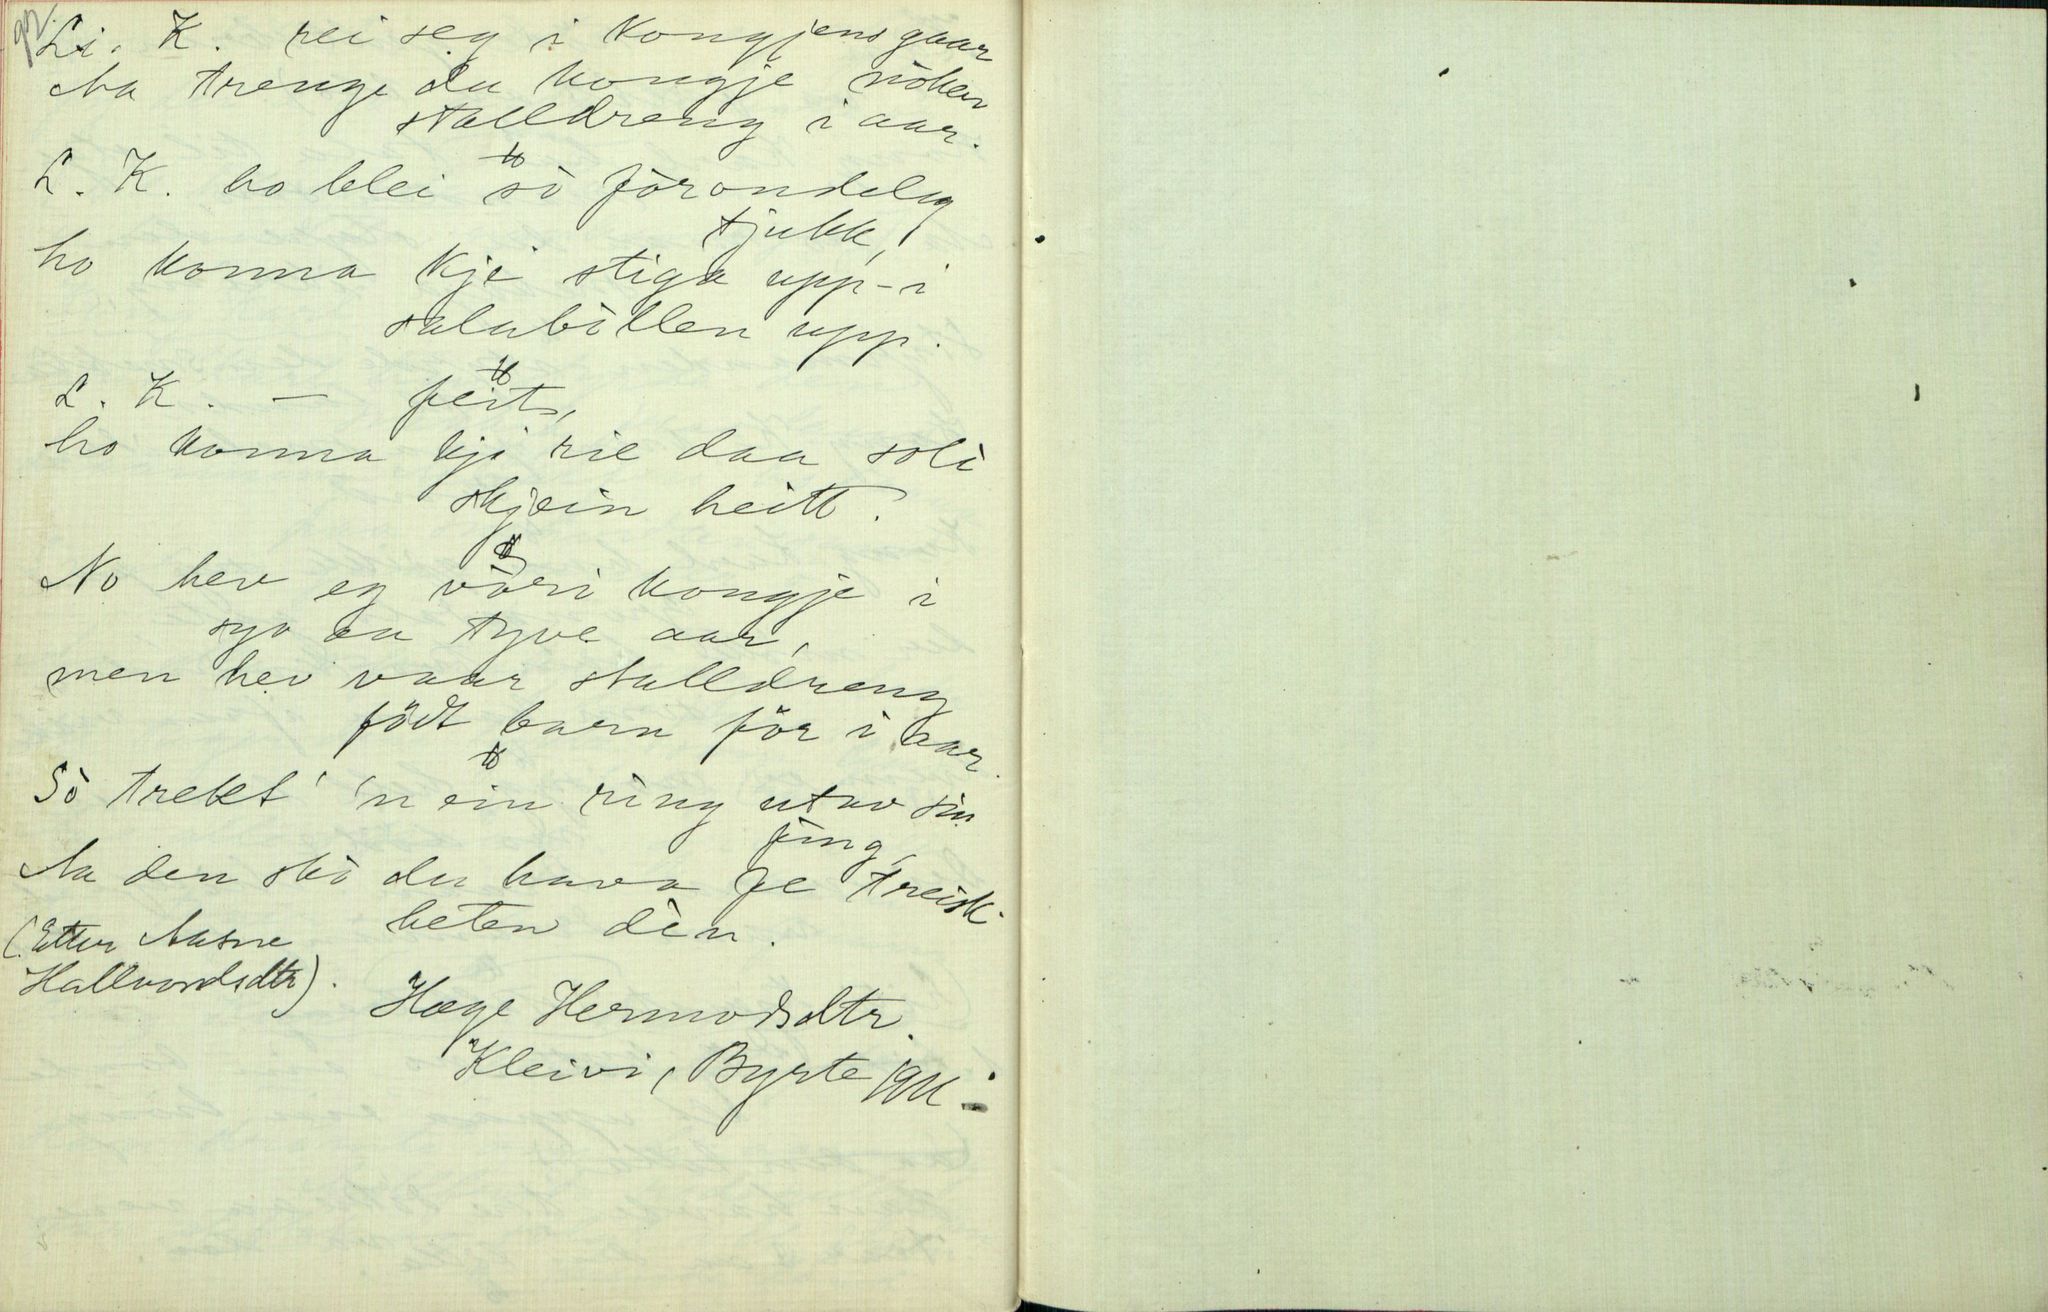 92.
Li. K. rei seg i kongjens gaar
Aa trenge du kongje nòken
stalldreng i aar.
L. K. ho blei sò fòrondelig
tjukk,
ho konna kje stiga upp-i
salabillen upp.
L. K. — feit,
ho konna kje rie daa soli
skjein heitt.
No hev eg vòri kongje i
syv aa tyve aar,
men hev vaar stalldreng
födt barn för i aar.
Sò trekt' 'n ein ring utav sin
fing,
Aa den skò du hava fe treisk-
heten din.
(Etter Aasne
Hallvordsdtr).
Hæge Hermodsdtr.
Kleivi, Byrte 1911.